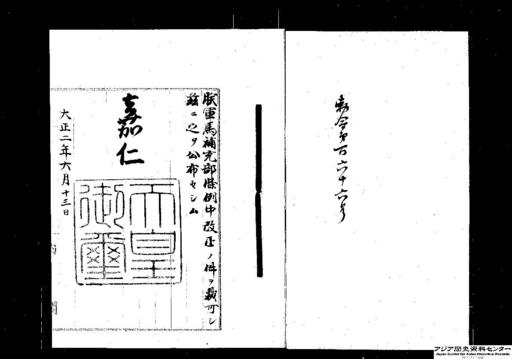 勅令第百六十六号
朕軍馬補充部條例中改正ノ件ヲ裁可シ
茲ニ之ヲ公布セシム
嘉仁
天皇
御璽
大正二年六月十三日
内閣
アジア歴史資料センター
Japan Center for Asian Historical Records